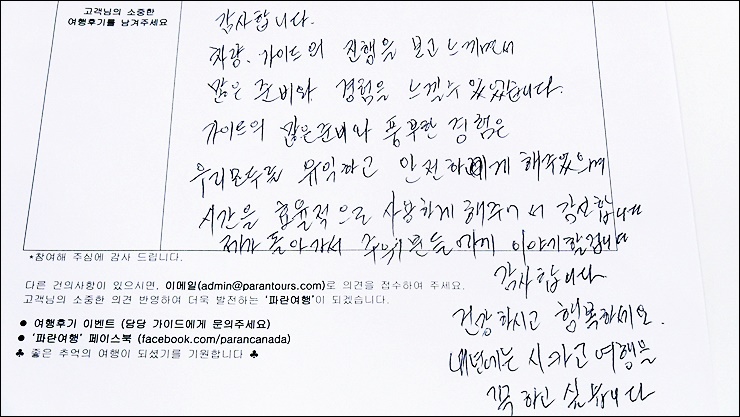 고객님의 소중한
여행후기를 남겨주세요
감사합니다.
차량, 가이드의 진행을 보고 느끼면서
많은 준비와 경험을 느낄수 있었습니다.
가이드의 많은준비와 풍부한 경험은
우리모두를 유익하고 안전하게 해주었으며
시간을 효율적으로 사용하게 해주어서 감사합니다
제가 돌아가서 주위분들에게 이야기할겁니다
감사합니다
건강하시고 행복하세요.
내년에는 시카고여행을
꼭 하고 싶습니다
*참여해 주심에 감사 드립니다.
다른 건의사항이 있으시면, 이메일(admin@parantours.com)로 의견을 접수하여 주세요.
고객님의 소중한 의견 반영하여 더욱 발전하는 '파란여행'이 되겠습니다.
● 여행후기 이벤트 (담당 가이드에게 문의주세요)
● '파란여행' 페이스북 (facebook.com/parancanada)
♣ 좋은 추억의 여행이 되셨기를 기원합니다 ♣